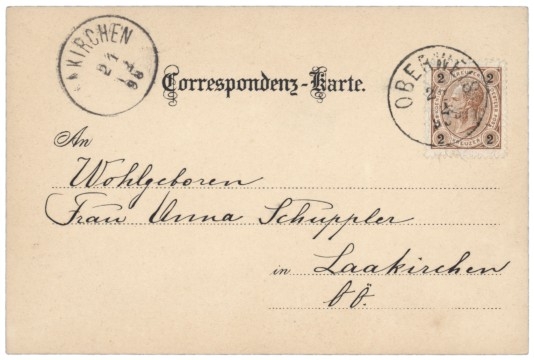 KIRCHEN
21
98
Correspondenz-Karte.
OBERWE
2
2
2
2
An
Wohlgeboren
Frau Anna Schuppler
in Laakirchen